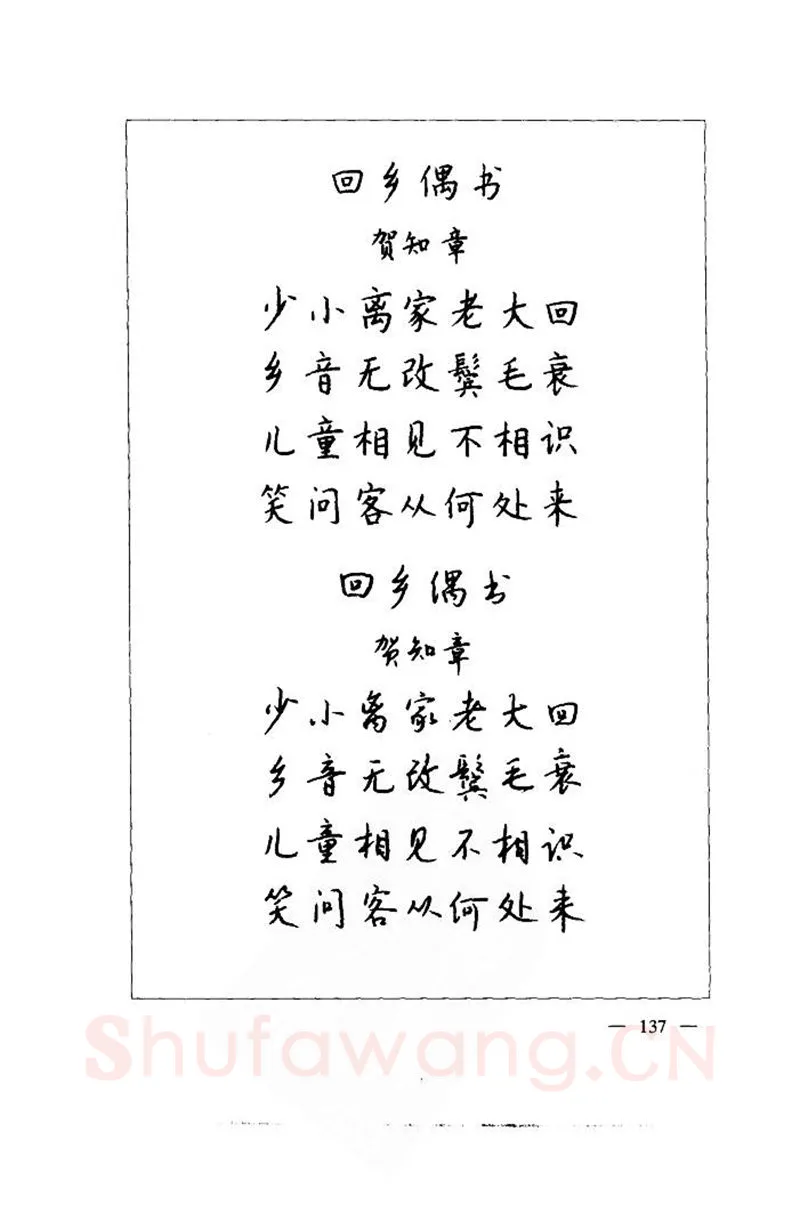 回乡偶书
贺知章
少小离家老大回
乡音无改鬓毛衰
儿童相见不相识
笑问客从何处来
回乡偶书
贺知章
少小离家老大回
乡音无改鬓毛衰
儿童相见不相识
笑问客从何处来
— 137 —
Shufawang.CN